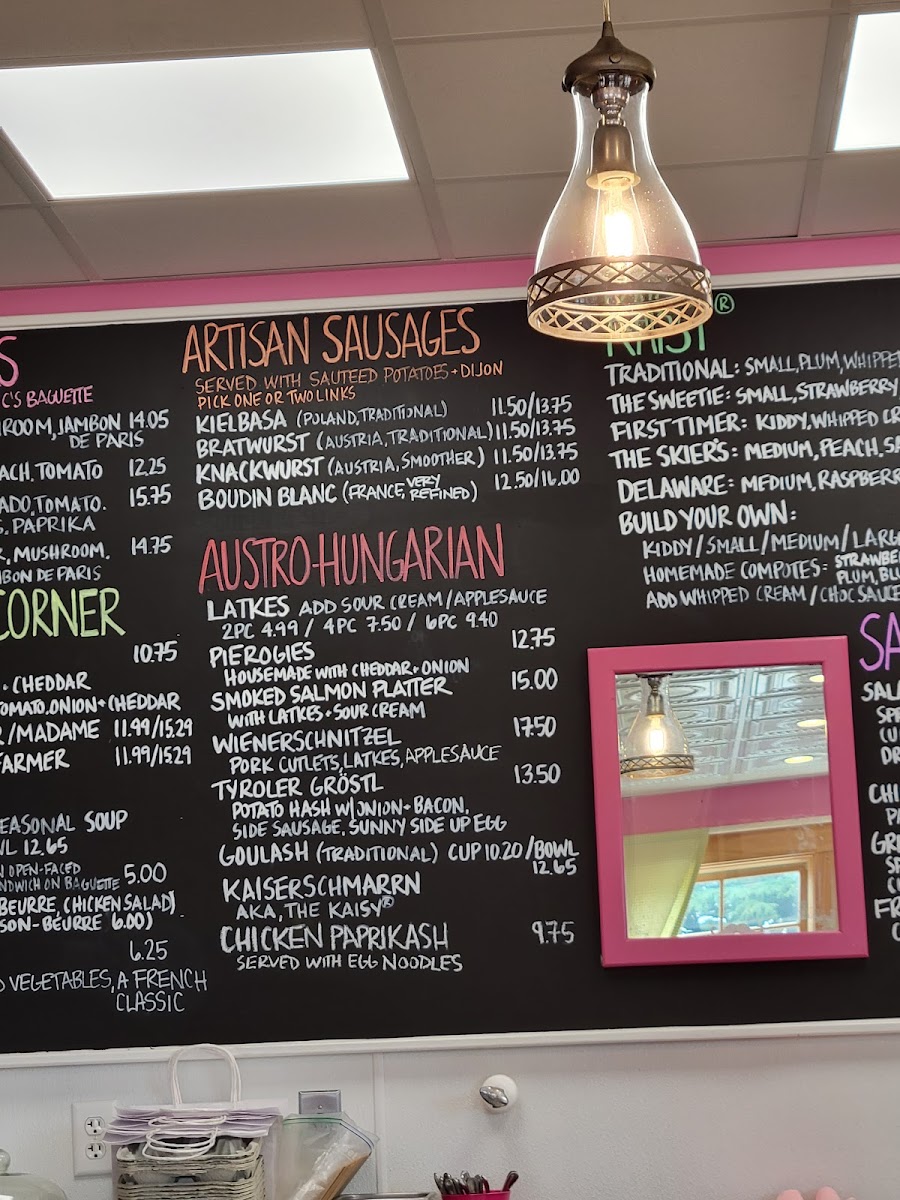 S
C'S BAGUETTE
ROOM, JAMBON 14.05
DE PARIS
ACH, TOMATO 12.25
ADO, TOMATO. 15.75
S, PAPRIKA
R, MUSHROOM. 14.75
MBON DE PARIS
CORNER
10.75
+ CHEDDAR
TOMATO, ONION + CHEDDAR
R/MADAME 11.99/15.29
FARMER 11.99/15.29
EASONAL SOUP
WL 12.65
N OPEN-FACED
NDWICH ON BAGUETTE 5.00
BEURRE, CHICKEN SALAD)
SON-BEURRE 6.00)
6.25
D VEGETABLES, A FRENCH
CLASSIC
ARTISAN SAUSAGES
SERVED WITH SAUTEED POTATOES + DIJON
PICK ONE OR TWO LINKS
KIELBASA (POLAND, TRADITIONAL) 11.50/13.75
BRATWURST (AUSTRIA, TRADITIONAL) 11.50/13.75
KNACKWURST (AUSTRIA, SMOOTHER) 11.50/13.75
BOUDIN BLANC (FRANCE, VERY REFINED) 12.50/16.00
AUSTRO-HUNGARIAN
LATKES ADD SOUR CREAM/APPLESAUCE
2PC 4.99 / 4PC 7.50 / 6PC 9.40
PIEROGIES 12.75
HOUSEMADE WITH CHEDDAR + ONION
SMOKED SALMON PLATTER 15.00
WITH LATKES + SOUR CREAM
WIENERSCHNITZEL 17.50
PORK CUTLETS, LATKES, APPLESAUCE
TYROLER GRÖSTL 13.50
POTATO HASH W/ONION + BACON,
SIDE SAUSAGE, SUNNY SIDE UP EGG
GOULASH (TRADITIONAL) CUP 10.20 /BOWL
12.65
KAISERSCHMARRN
AKA, THE KAISY®
CHICKEN PAPRIKASH 9.75
SERVED WITH EGG NOODLES
KAISY®
TRADITIONAL: SMALL, PLUM, WHIPPE
THE SWEETIE: SMALL, STRAWBERRY
FIRST TIMER: KIDDY, WHIPPED CR
THE SKIER'S: MEDIUM, PEACH, SA
DELAWARE: MEDIUM, RASPBERR
BUILD YOUR OWN:
KIDDY/SMALL/MEDIUM/LARG
HOMEMADE COMPOTES: STRAWBE
PLUM, BLU
ADD WHIPPED CREAM/CHOC SAUCE
SA
SALA
SP
CU
DR
CHI
PA
GRE
SP
CU
FR
C